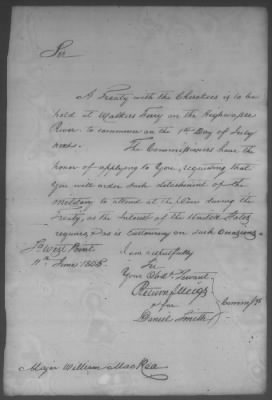 Sir
A Treaty with the Cherokees is to be
held at Walkers Ferry on the Highwassee
River to commence on the 1st Day of July
next. The Commissioners have the
honor of applying to You, requesting that
You will order such detachment of the
military to attend at the time during the
Treaty, as the Interest of the United States
requires, & as is customary on such occasions
So West Point
11th June 1805
I am respectfully
Sir
Your Obdt. Servant
Return J Meigs
& for
Daniel Smith
Commrs
Major William MacRea